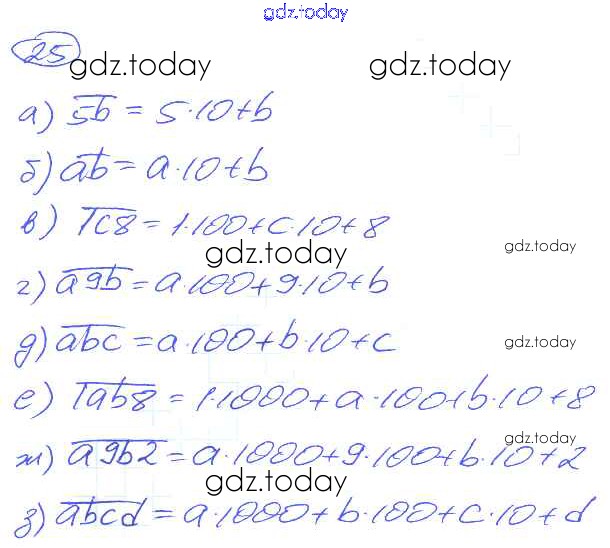 gdz.today
25
gdz.today gdz.today
а) 5b = 5·10+b
б) ab = a·10+b
в) 1c8 = 1·100+c·10+8
gdz.today gdz.today
г) a9b = a·100+9·10+b
д) abc = a·100+b·10+c
gdz.today gdz.today
е) 1ab8 = 1·1000+a·100+b·10+8
gdz.today
ж) a9b2 = a·1000+9·100+b·10+2
gdz.today gdz.today
з) abcd = a·1000+b·100+c·10+d